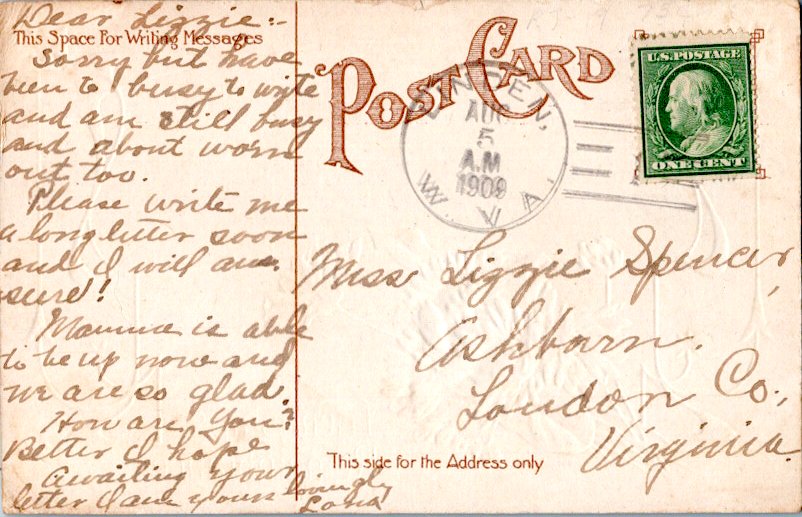 Dear Lizzie:-
This Space For Writing Messages
Sorry but have
been to busy to write
and am still busy
and about worn
out too.
Please write me
a long letter soon
and I will ans.
sure!
Mamma is able
to be up now and
we are so glad.
How are you?
Better I hope
Awaiting your
letter I am yours lovingly
POST CARD
AUG
5
A.M
1909
W. VA.
U.S. POSTAGE
ONE CENT
Miss Lizzie Spencer,
Ashburn.
Loudon Co.,
Virginia.
This side for the Address only